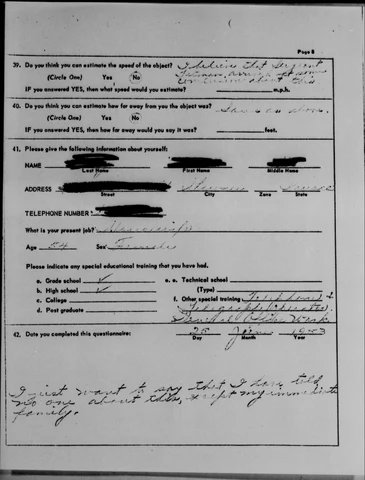 Page 8
39. Do you think you can estimate the speed of the object? I believe that Sergeant
(Circle One) Yes No
conclusion about this
IF you answered YES, then what speed would you estimate? m.p.h.
40. Do you think you can estimate how far away from you the object was? Same as above.
(Circle One) Yes No
IF you answered YES, then how far away would you say it was? feet.
41. Please give the following information about yourself:
NAME
Last Name First Name Middle Name
ADDRESS
Street City Zone State
TELEPHONE NUMBER
What is your present job? Housewife
Age 54 Sex Female
Please indicate any special educational training that you have had.
a. Grade school ✓ e. Technical school
b. High school ✓ (Type)
c. College f. Other special training Telephone &
d. Post graduate Telegraph Operator
General Office Work
42. Date you completed this questionnaire: 25 Jan 1953
Day Month Year
I just want to say that I have told
no one about this, except my immediate
family.